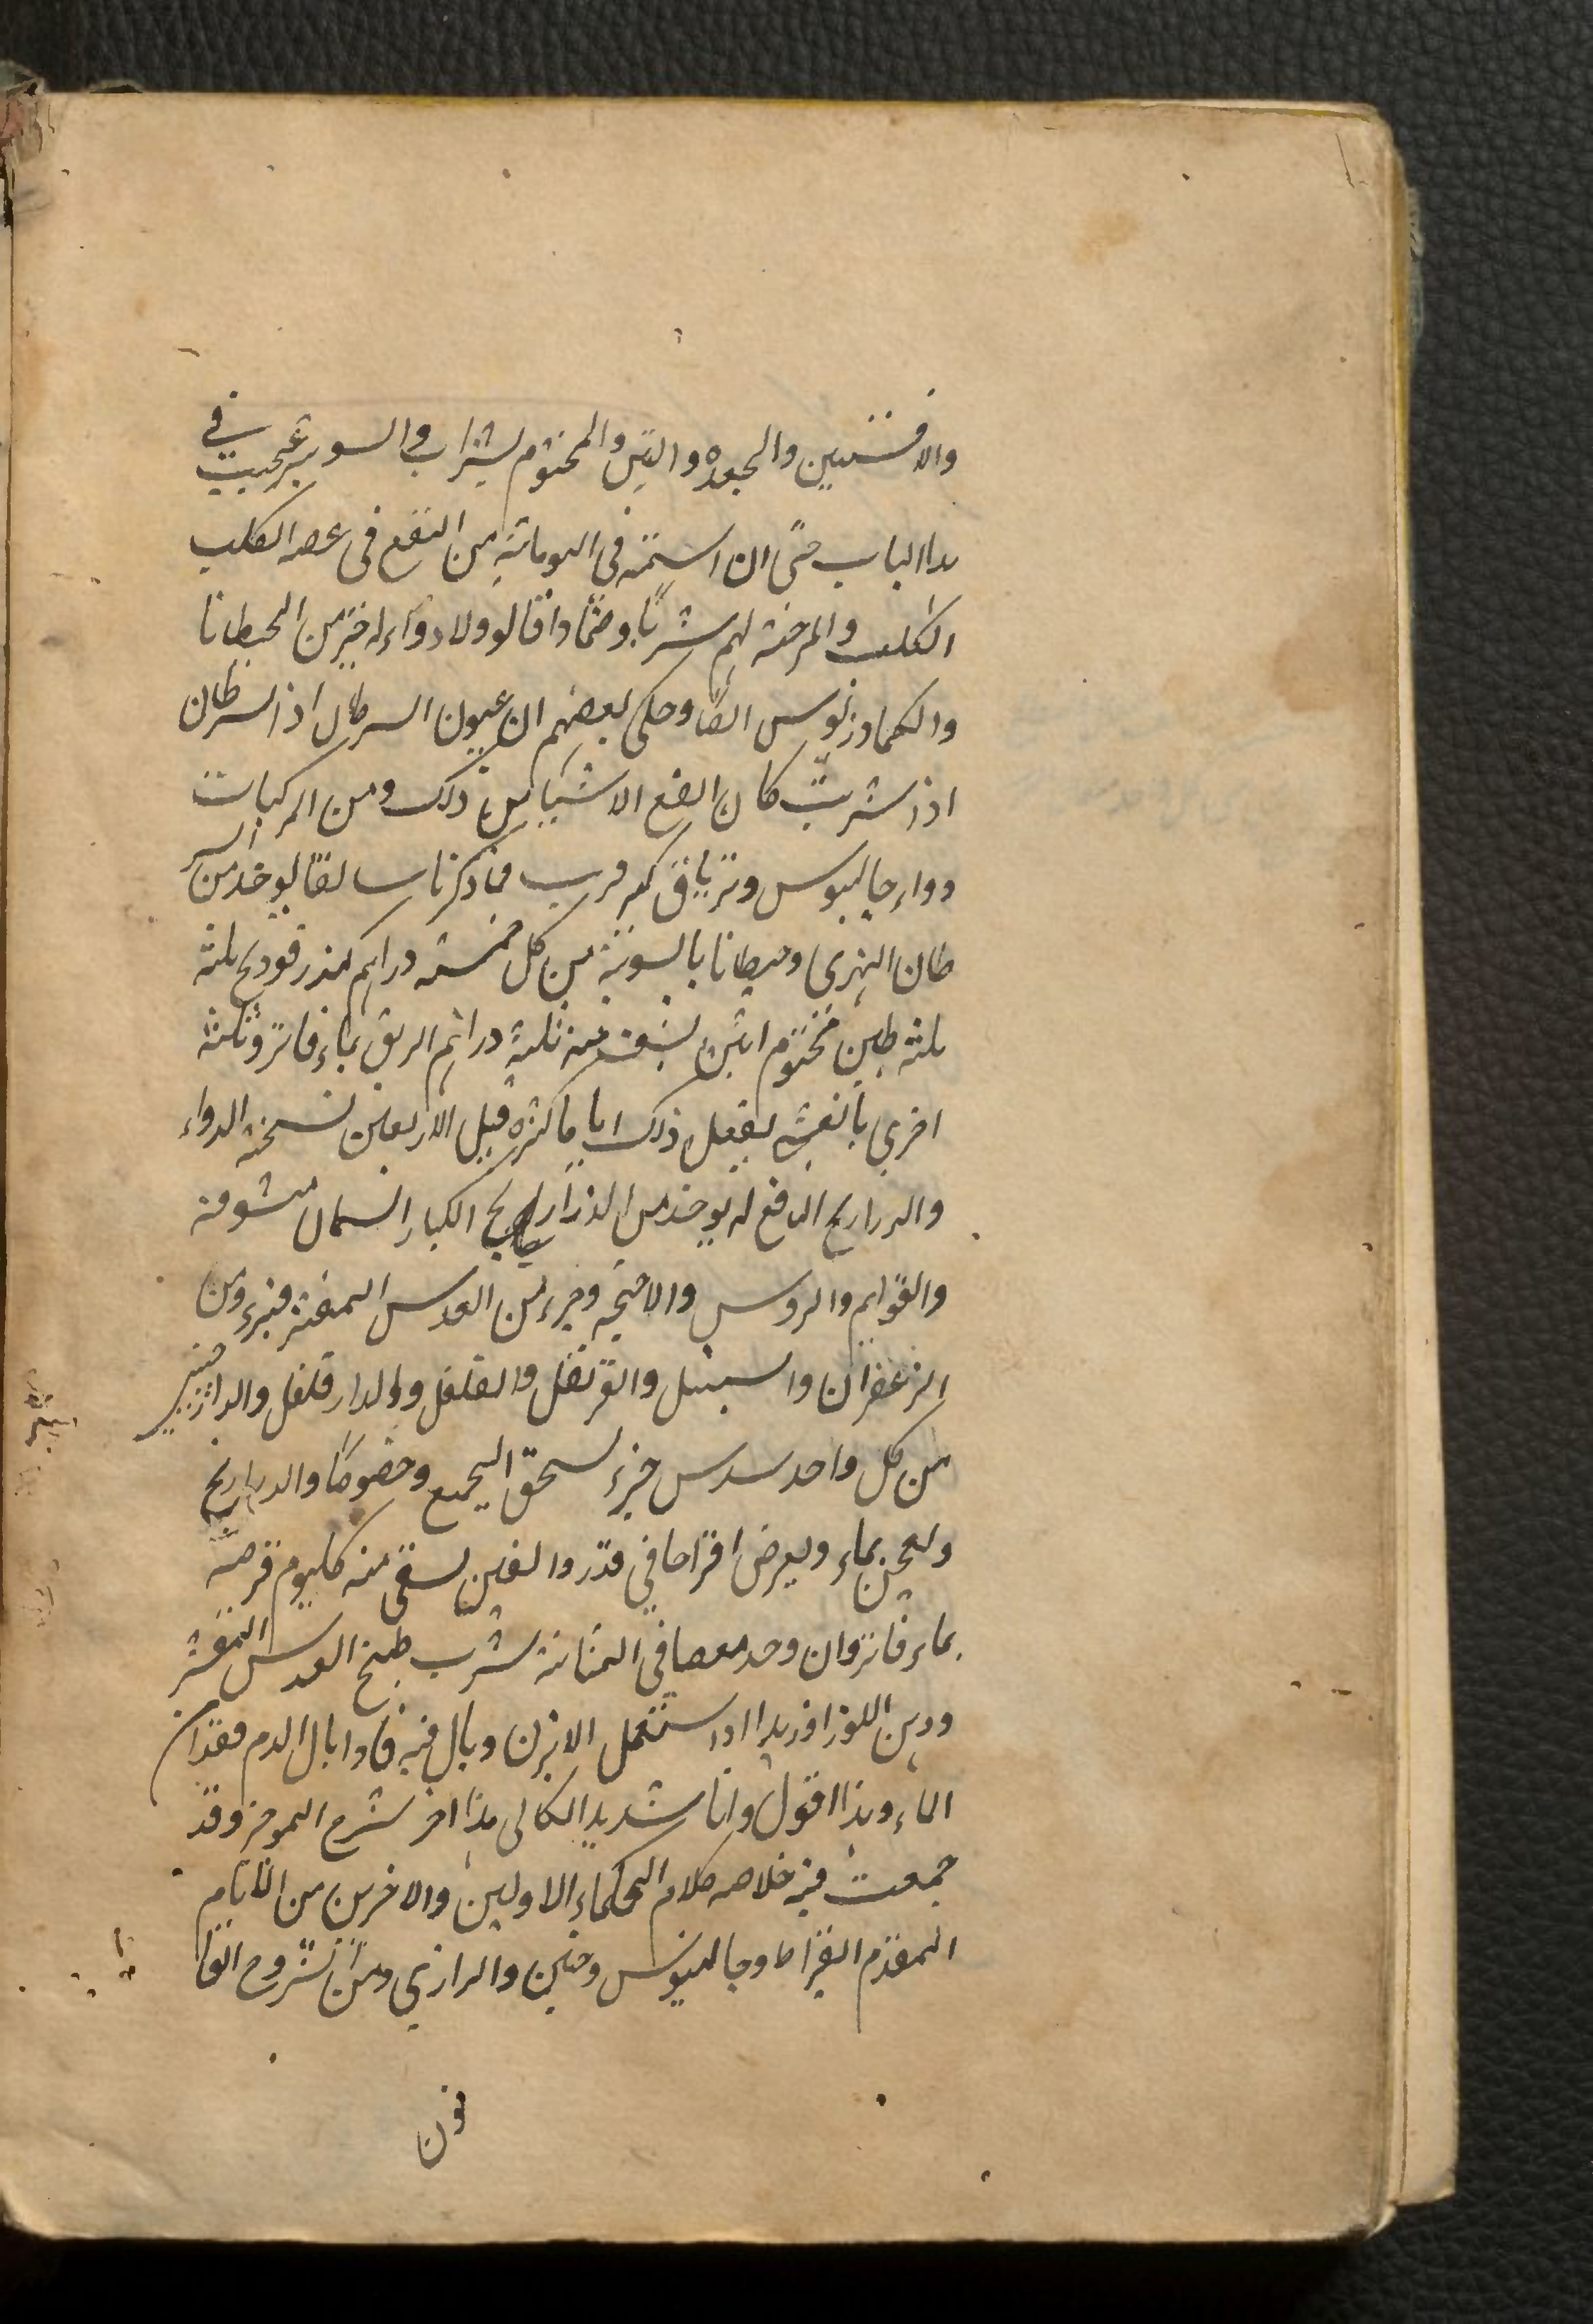 والافسنتين والجعده والتين والمختوم بشراب والسوير عجيب في
هذا الباب حتى ان استمه في اليونانية من النفع في عضه الكلب
الكلب والمرخسة لهم شربًا وضمادا قالو ولا دواء له خير من الحيطانا
والكمادزيوس ايضًا وحكى بعضهم ان عيون السرطان اذ السرطان
اذا شربت كان انفع الاشياء من ذلك ومن المركبات
دواء جالينوس وترياق كبير مما ذكرنا سالفا يوخذ من السر
طان النهري وحيطانا بالسوية من كل خمسة دراهم كندر فوديج ثلثة
ثلثة طين مختوم اثنين يسقى منه ثلثة دراهم الريق بماء فاتر وثلثة
اخرى بالعشي يفعل ذلك اياما كثيره قبل الاربعين نسخة الدواء
والدراريح النافع له يوخذ من الذراريح الكبار السمان منتوفة
والقوايم والروس والاجنحه وجزء من العدس المقشر جزء ومن
الزعفران والسنبل والقرنفل والفلفل والدار فلفل والدارصيني
من كل واحد سدس جزء يسحق الجميع وخصوصًا والدراريح
ويعجن بماء ويقرض اقراصا في قدر دانقين يسقى منه كل يوم قرصة
بماء فاتر وان وجد مغصا في المثانة شرب طبيخ العدس المقشر
ودهن اللوز او زبدا اذا استعمل الابزن وبال فيه فاذا بال الدم فقد امن
الماء وهذا اقول وانا شديد الكالى هذا اخر شرح الموجز وقد
جمعت فيه خلاصه كلام الحكماء الاولين والاخرين من الانام
المقدم البقراط وجالينوس وحنين والرازي ومن شروح القا
نون